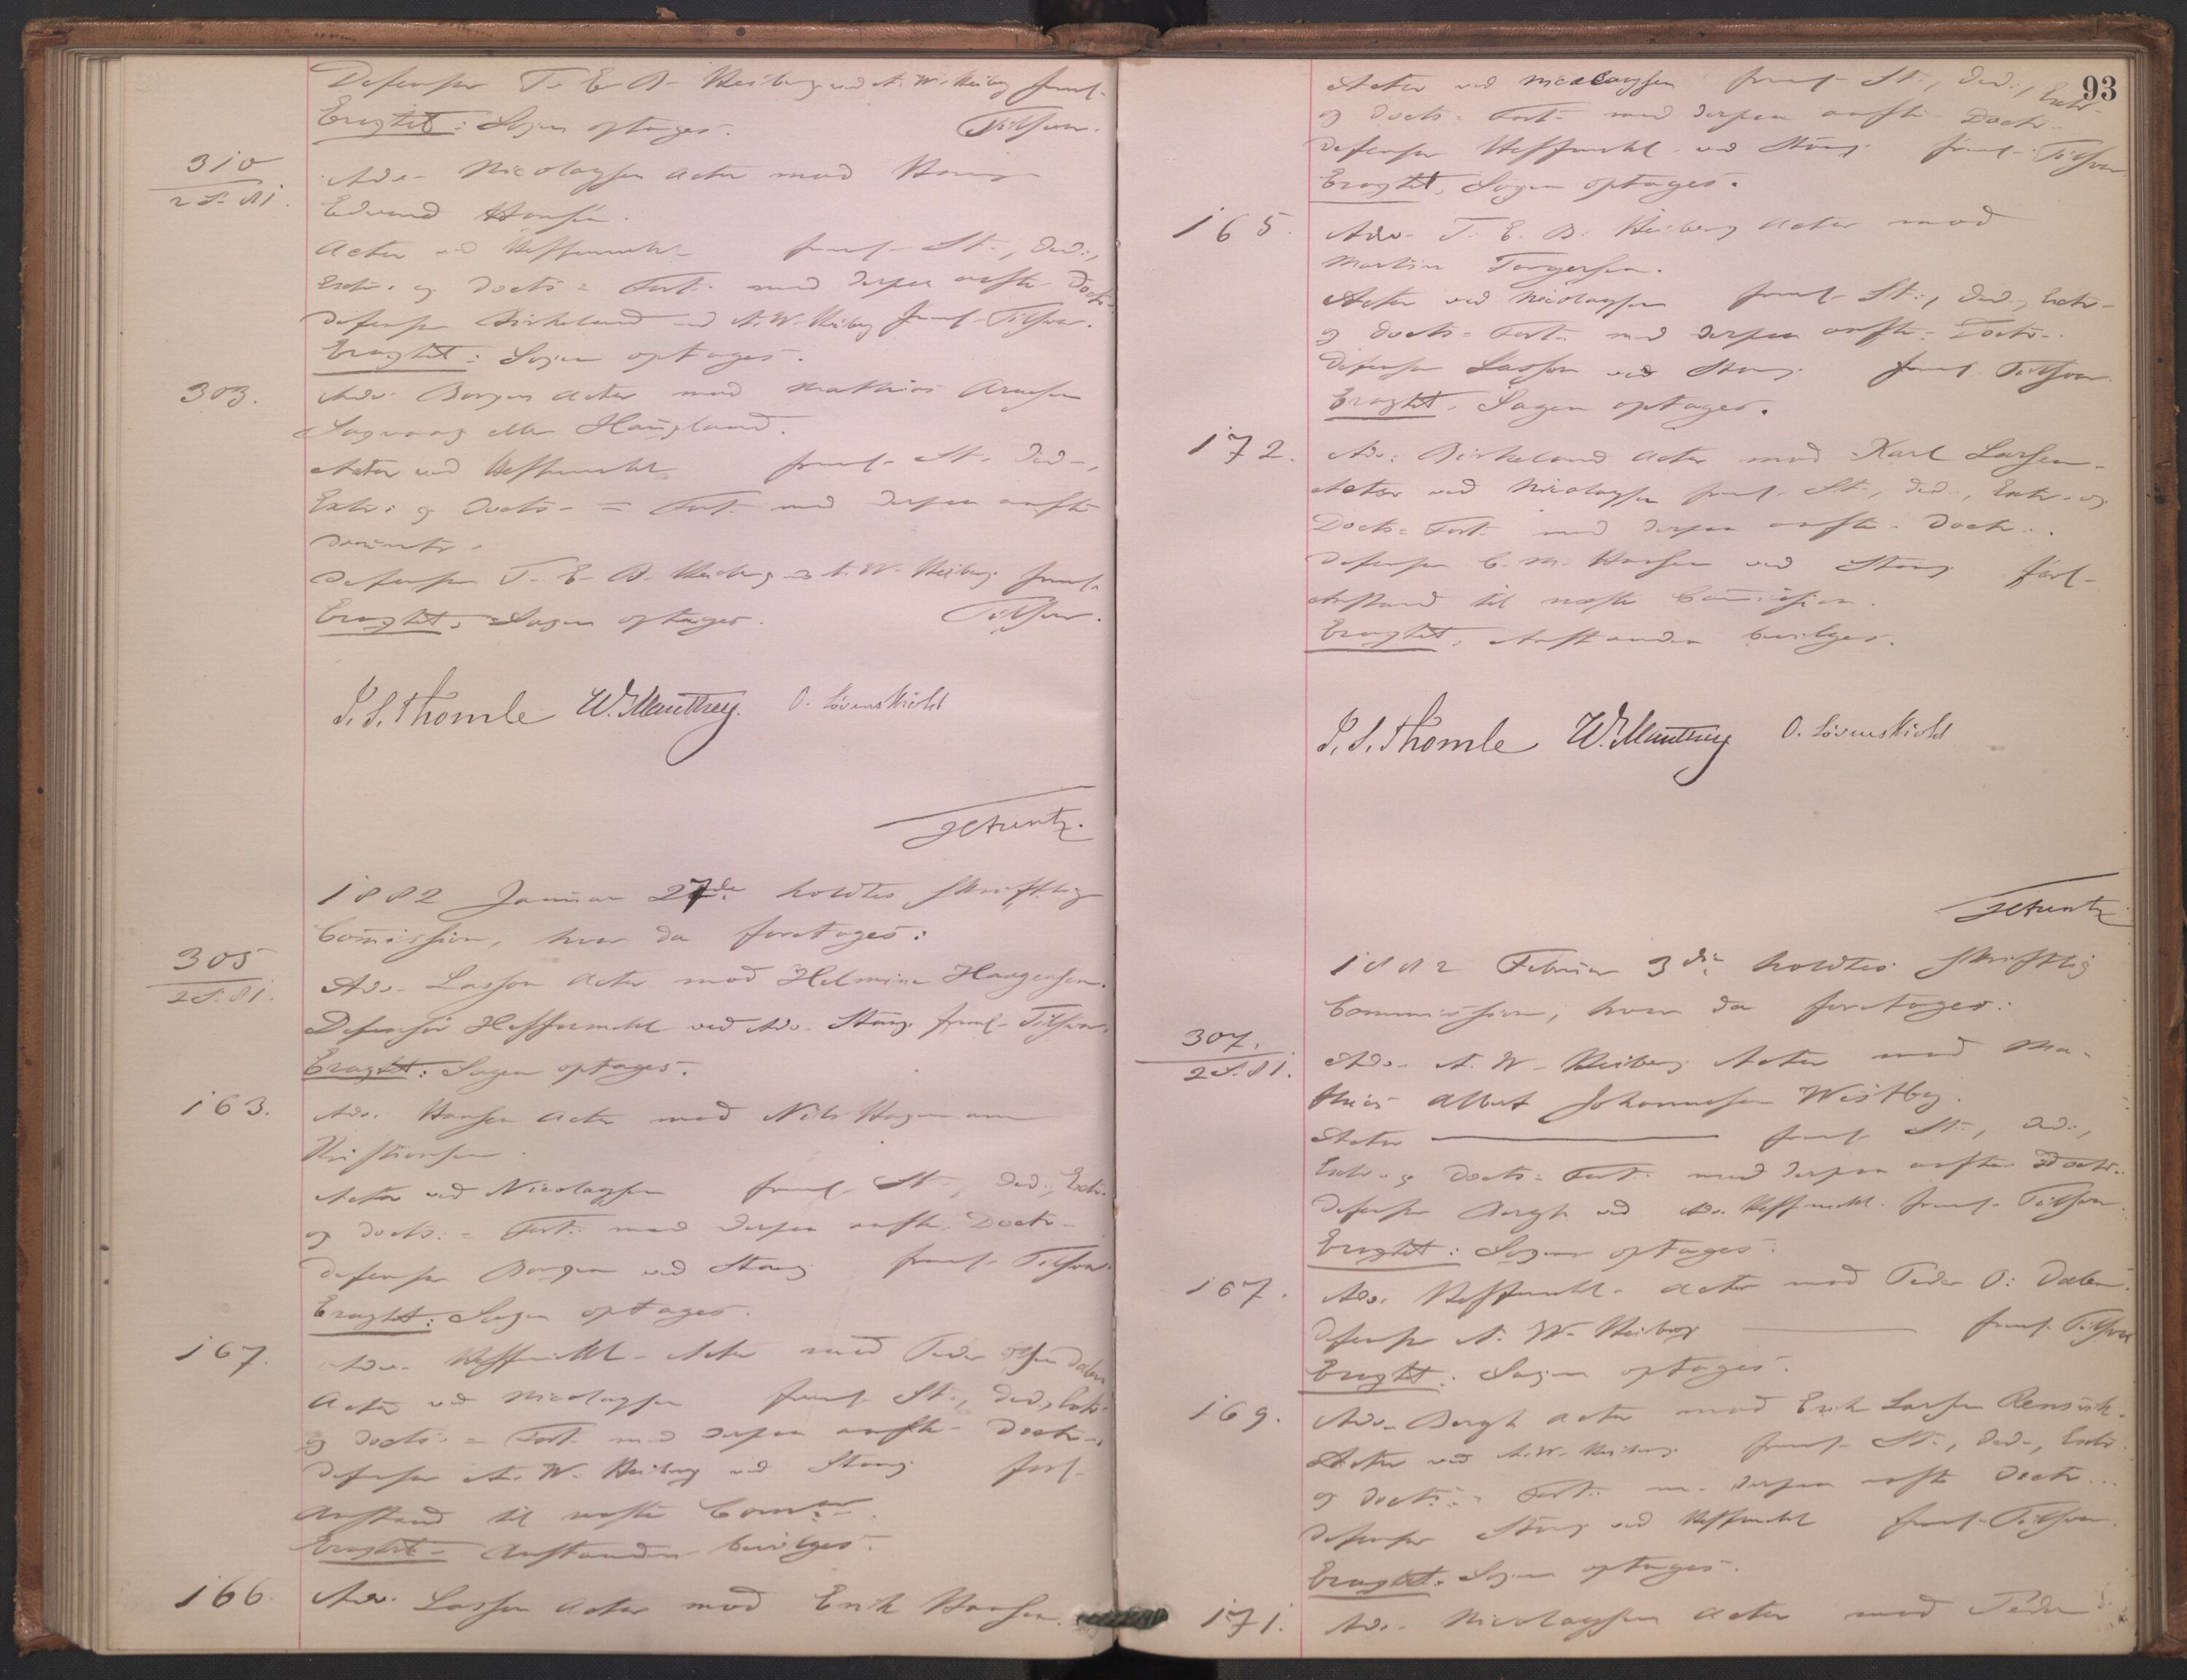 Defensor T. E. B. Heiberg ved A. W. Heiberg freml.
Eragtet: Sagen optages. Tilsvar.
310
2 S. 81.
Adv. Nicolaysen Actor mod Hans
Edvard Hansen.
Actor ved Heffermehl freml. St., Ded.,
Extr. og Docts = Fort. med derpaa anførte Doctr.
Defensor Birkeland ved A. W. Heiberg freml. Tilsvar.
Eragtet: Sagen optages.
303.
Adv. Borgen Actor mod Mathias Arnesen
Sagvaag eller Haugland.
Actor ved Heffermehl freml. St. Ded.,
Extr. og Docts = Fort. med derpaa anførte
Defensor T. E. B. Heiberg ved A. W. Heiberg freml.
Eragtet: Sagen optages. Tilsvar.
I. S. Thomle W. Manthey. O. Løvenskiold
1882 Januar 27de holdtes skriftlig
Commission, hvor da foretoges:
305
2 S. 81.
Adv. Lasson Actor mod Helmine Haagensen.
Defensor Heffermehl ved Adv. Stang freml. Tilsvar.
Eragtet: Sagen optages.
163.
Adv. Hansen Actor mod Nils Hagemann
Kristiansen.
Actor ved Nicolaysen freml. St., Ded., Extr.
og Docts. = Fort. med derpaa anførte Doctr.
Defensor Borgen ved Stang freml. Tilsvar.
Eragtet: Sagen optages.
167.
Adv. Heffermehl Actor mod Peder Olsen Dalen
Actor ved Nicolaysen freml. St., Ded., Extr.
og Docts. = Fort. med derpaa anførte Doctr.
Defensor A. W. Heiberg ved Stang forl.
Anstand til næste Comm.
Eragtet. Anstanden bevilges.
166.
Adv. Lasson Actor mod Erik Hansen.
93
Actor ved Nicolaysen freml. St., Ded., Extr.
og Docts = Fort. med derpaa anførte Doctr.
Defensor Heffermehl ved Stang freml. Tilsvar
Eragtet, Sagen optages.
165.
Adv. T. E. B. Heiberg Actor mod
Martin Torgersen.
Actor ved Nicolaysen freml. St., Ded., Extr.
og Docts = Fort. med derpaa anførte Doctr.
Defensor Lasson ved Stang freml. Tilsvar.
Eragtet. Sagen optages.
172.
Adv. Birkeland Actor mod Karl Larsen.
Actor ved Nicolaysen freml. St., Ded., Extr. og
Docts = Fort. med derpaa anførte Doctr.
Defensor C. M. Hansen ved Stang forl.
Anstand til næste Commission.
Eragtet, Anstanden bevilges.
I. S. Thomle W. Manthey O. Løvenskiold
1882 Februar 3die holdtes skriftlig
Commission, hvor da foretoges:
307.
2 S. 81.
Adv. A. W. Heiberg Actor mod Ma-
thias Albert Johannesen Wistby.
Actor — freml. St., Ded.,
Extr. og Docts = Fort. med derpaa anførte Doctr.
Defensor Bergh ved Adv. Heffermehl freml. Tilsvar.
Eragtet: Sagen optages.
167.
Adv. Heffermehl Actor mod Peder O. Dalen.
Defensor A. W. Heiberg — freml. Tilsvar
Eragtet: Sagen optages.
169.
Adv. Bergh Actor mod Erik Larsen
Actor ved A. W. Heiberg freml. St., Ded., Extr.
og Docts = Fort. m. derpaa anførte Doctr.
Defensor Stang ved Heffermehl freml. Tilsvar.
Eragtet. Sagen optages.
171.
Adv. Nicolaysen Actor mod Peder